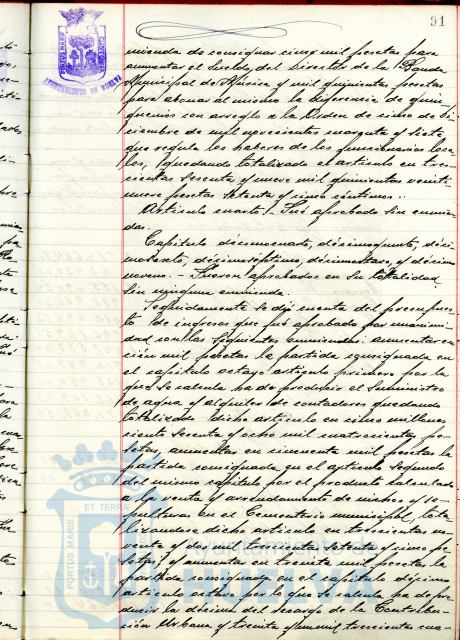 91
AYUNTAMIENTO DE HUELVA
mienda de consignar cinco mil pesetas para
aumentar el sueldo del Director de la Banda
Municipal de Música y mil quinientas pesetas
para abonar al mismo la diferencia de quin-
quenios con arreglo a la Orden de cinco de Di-
ciembre de mil novecientos cuarenta y siete
que regula los haberes de los funcionarios loca-
les, quedando totalizado el artículo en tres-
cientas sesenta y nueve mil quinientas veinti-
nueve pesetas setenta y cinco céntimos.-
Artículo cuarto.- Fué aprobado sin enmien-
das.
Capítulo décimocuarto, décimoquinto, déci-
mosexto, décimoséptimo, décimoctavo, y décimo
noveno.- Fueron aprobados en su totalidad
sin ninguna enmienda.
Seguidamente se dió cuenta del presupues-
to de ingresos que fué aprobado por unanimi-
dad con las siguientes enmiendas: aumentar en
cien mil pesetas la partida consignada en
el capítulo octavo artículo primero por lo
que se calcula ha de producir el suministro
de agua y alquiler de contadores quedando
totalizado dicho artículo en cinco millones
ciento sesenta y ocho mil cuatrocientas pe-
setas, aumentar en cincuenta mil pesetas la
partida consignada en el artículo segundo
del mismo capítulo por el producto calculado
a la venta y arrendamiento de nichos y se-
pulturas en el Cementerio municipal, tota-
lizandose dicho artículo en trescientas no-
venta y dos mil trescientas setenta y cinco pe-
setas, y aumentar en sesenta mil pesetas la
partida consignada en el capítulo décimo
artículo octavo por lo que se calcula ha de pro-
ducir la décima del recargo de la Contribu-
ción Urbana y treinta y un mil trescientas cua-
ET TERRAE
PORTUS MARIS
Ayuntamiento de
HUELVA